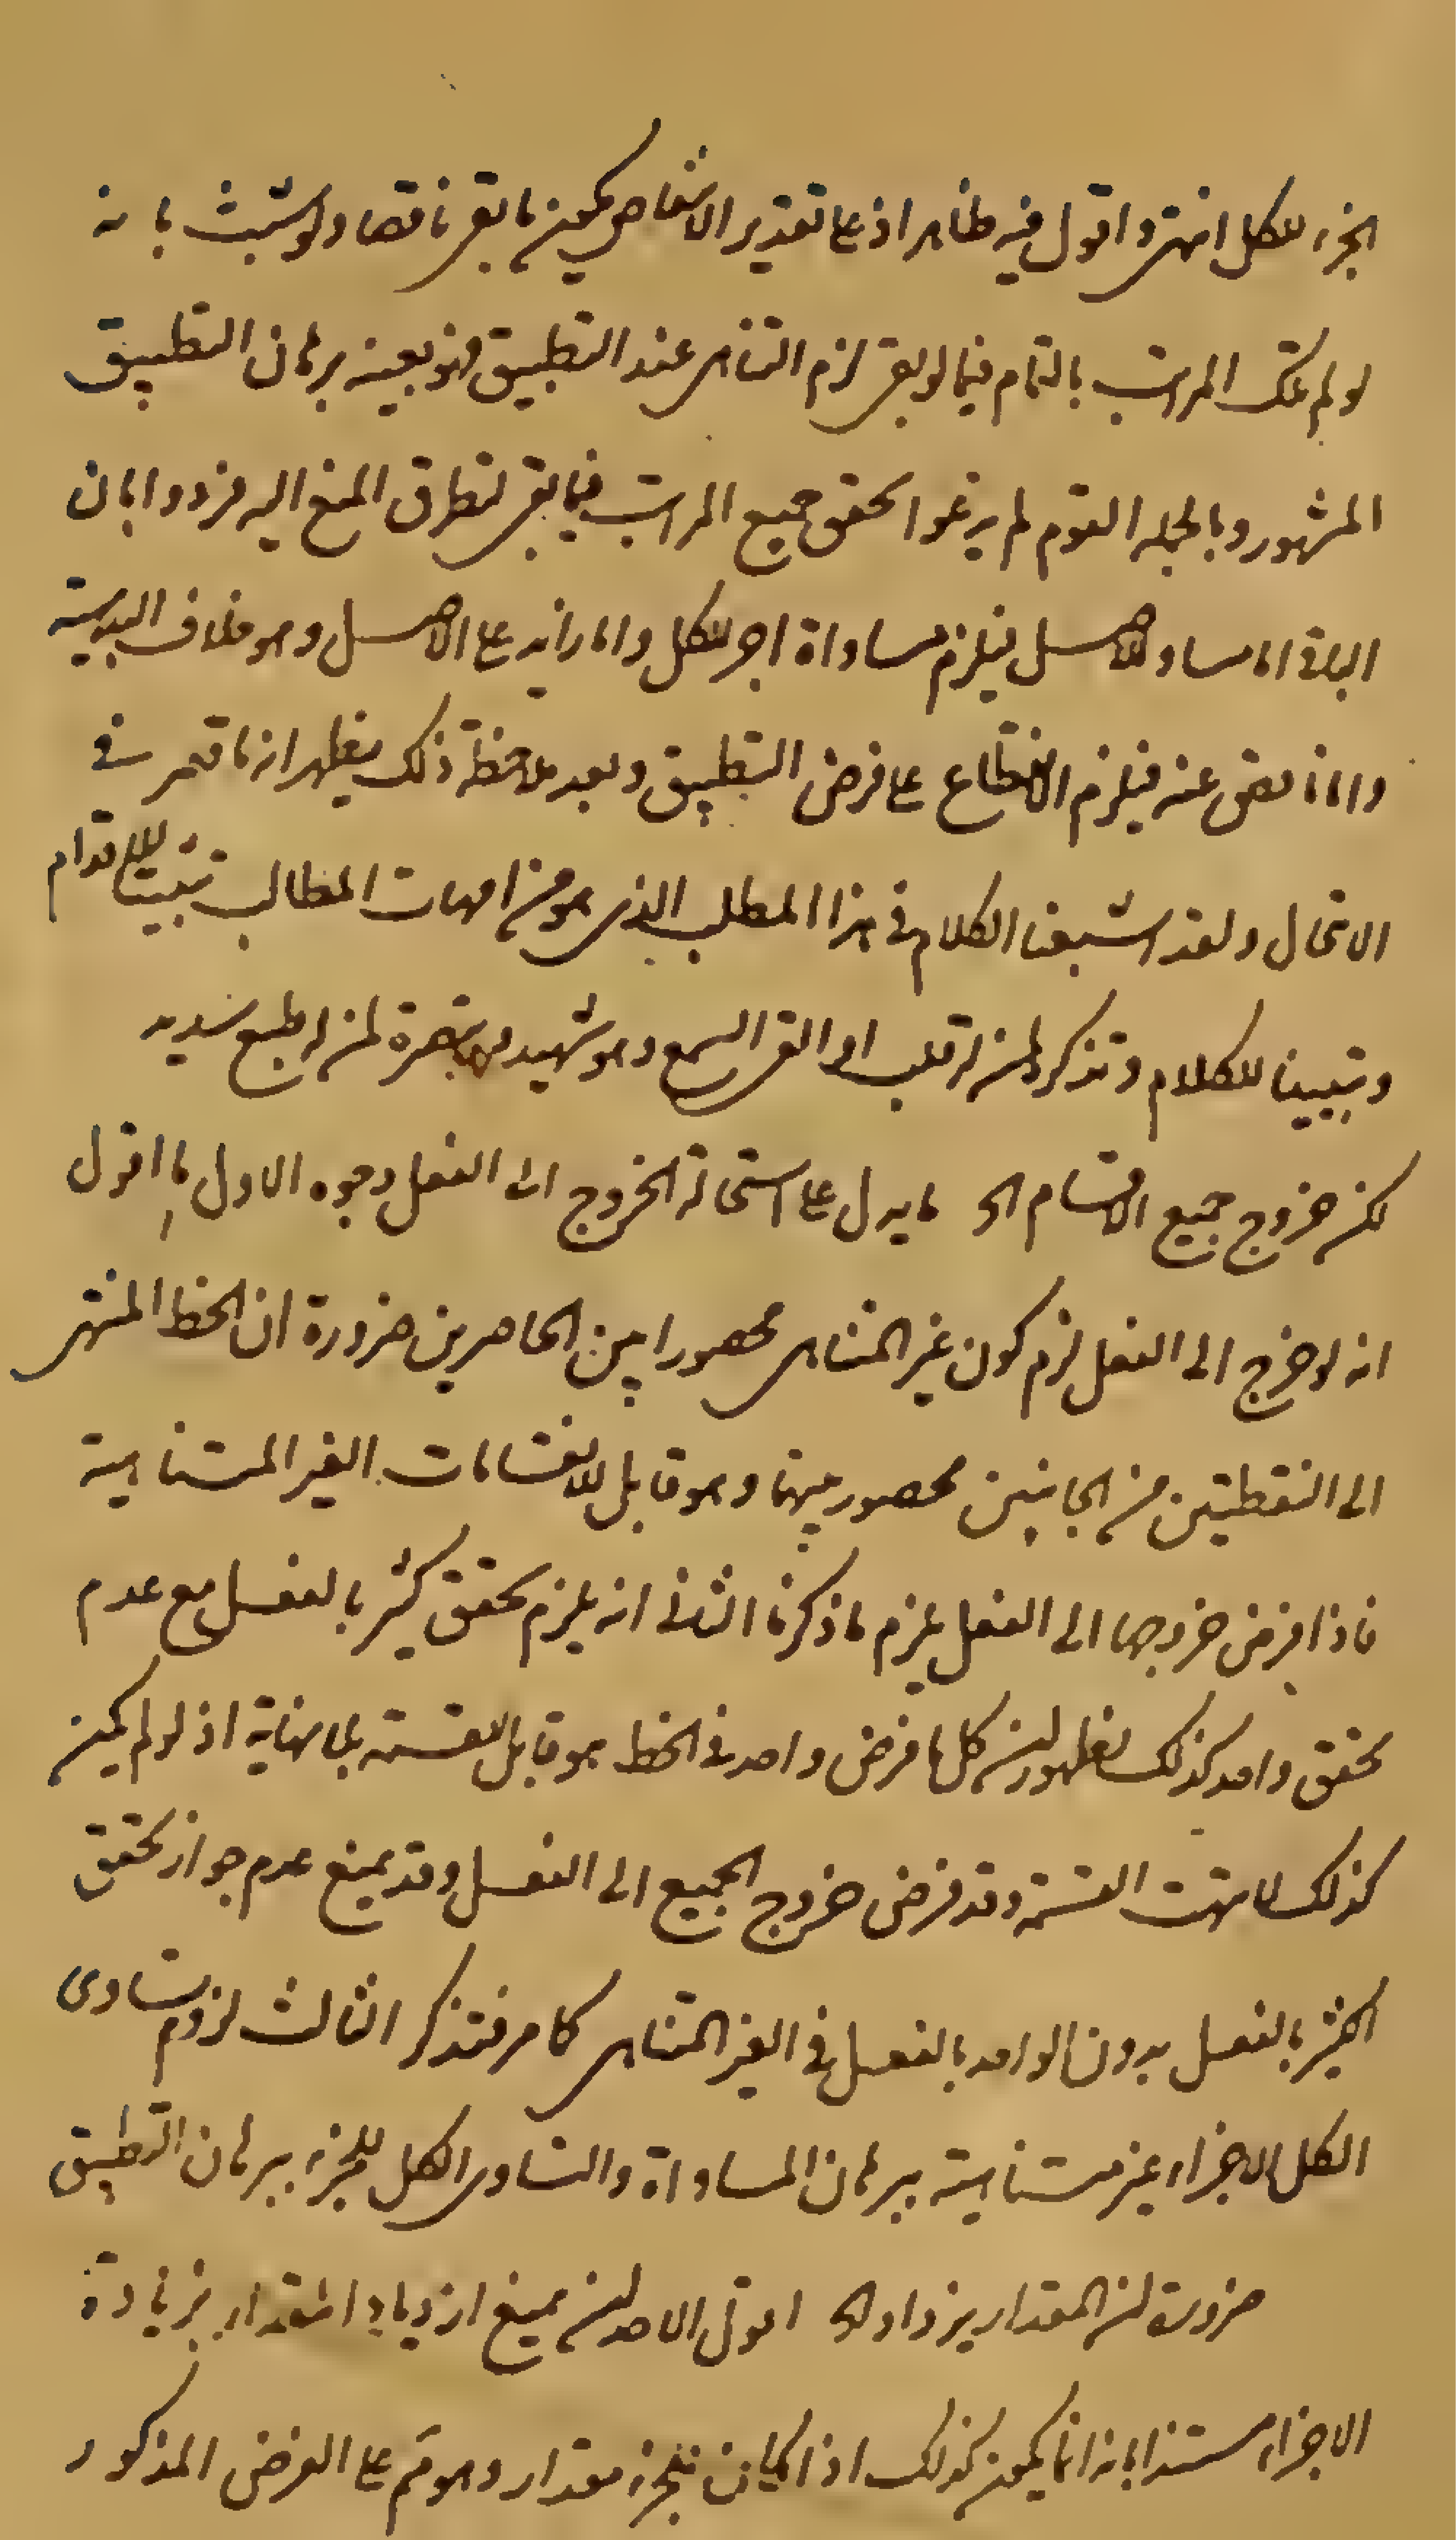 الجزء للكل انتهى واقول فيه ظاهر اذ على تقدير الانتقاص يكون ما بقى ناقصا ولو تشبث بانه
لو لم يكن المراتب بالتمام فيما لو بقى لزم التناهى عند التطبيق فهو بعينه برهان التطبيق
المشهور وبالجملة القوم لم يدعوا تحقق جميع المراتب فيما بقى لتطرق المنع اليه فرددوا بان
الباقى اما مساو للاصل فيلزم مساواة الجزء للكل واما زائد على الاصل وهو خلاف البديهة
واما ناقص عنه فيلزم الانقطاع على فرض التطبيق وبعد ملاحظة ذلك يظهر انه ما قصر فى
الانتحال ولقد اشبعنا الكلام فى هذا المطلب الذى هو من امهات المطالب تثبيتا للاقدام
وتبيينا للكلام وتذكرة لمن له قلب او القى السمع وهو شهيد وتبصرة لمن له طبع سديد
لكن خروج جميع الاقسام الخ ما يدل على استحالة الخروج الى الفعل وجوه الاول ما اقول
انه لو خرج الى الفعل لزم كون غير المتناهى محصورا بين الحاصرين ضرورة ان الخط المنتهى
الى النقطتين من الجانبين محصور بينهما وهو قابل للانقسامات الغير المتناهية
فاذا فرض خروجها الى الفعل يلزم ما ذكرنا الثانى انه يلزم تحقق كثير بالفعل مع عدم
تحقق واحد كذلك لظهور ان كل ما فرض واحد فى الخط هو قابل للقسمة بلا نهاية اذ لو لم يكن
كذلك لانتهت القسمة وقد فرض خروج الجميع الى الفعل وقد يمنع عدم جواز تحقق
الكثير بالفعل بدون الواحد بالفعل فى الغير المتناهى كما مر فتذكر الثالث لزوم تساوى
الكل لاجزاء غير متناهية ببرهان المساواة والتساوى الكل للجزء ببرهان التطبيق
ضرورة ان المقدار يزداد الخ اقول لاحد ان يمنع ازدياد المقدار بزيادة
الاجزاء مستندا بانه انما يكون كذلك اذا كان للجزء مقدار وهو ثم على الفرض المذكور